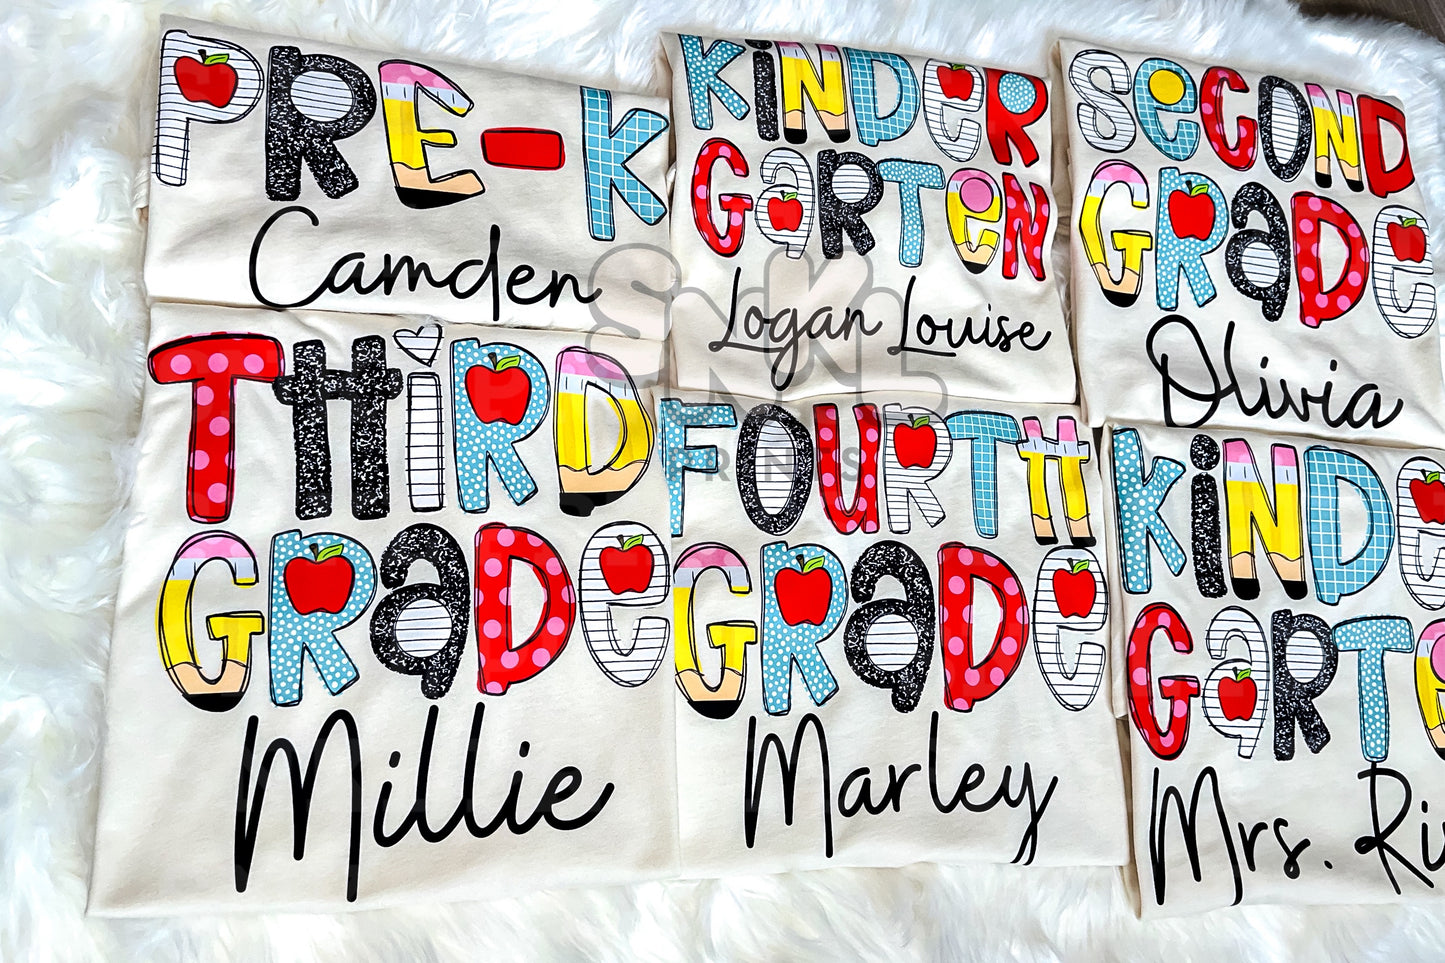 PRE-K
Camden
KiNDER
GARTEN
Logan Louise
SECOND
GRADE
Olivia
THiRD
GRADE
Millie
FOURTH
GRADE
Marley
KiNDE
GARTE
Mrs. Ri
PRINTS